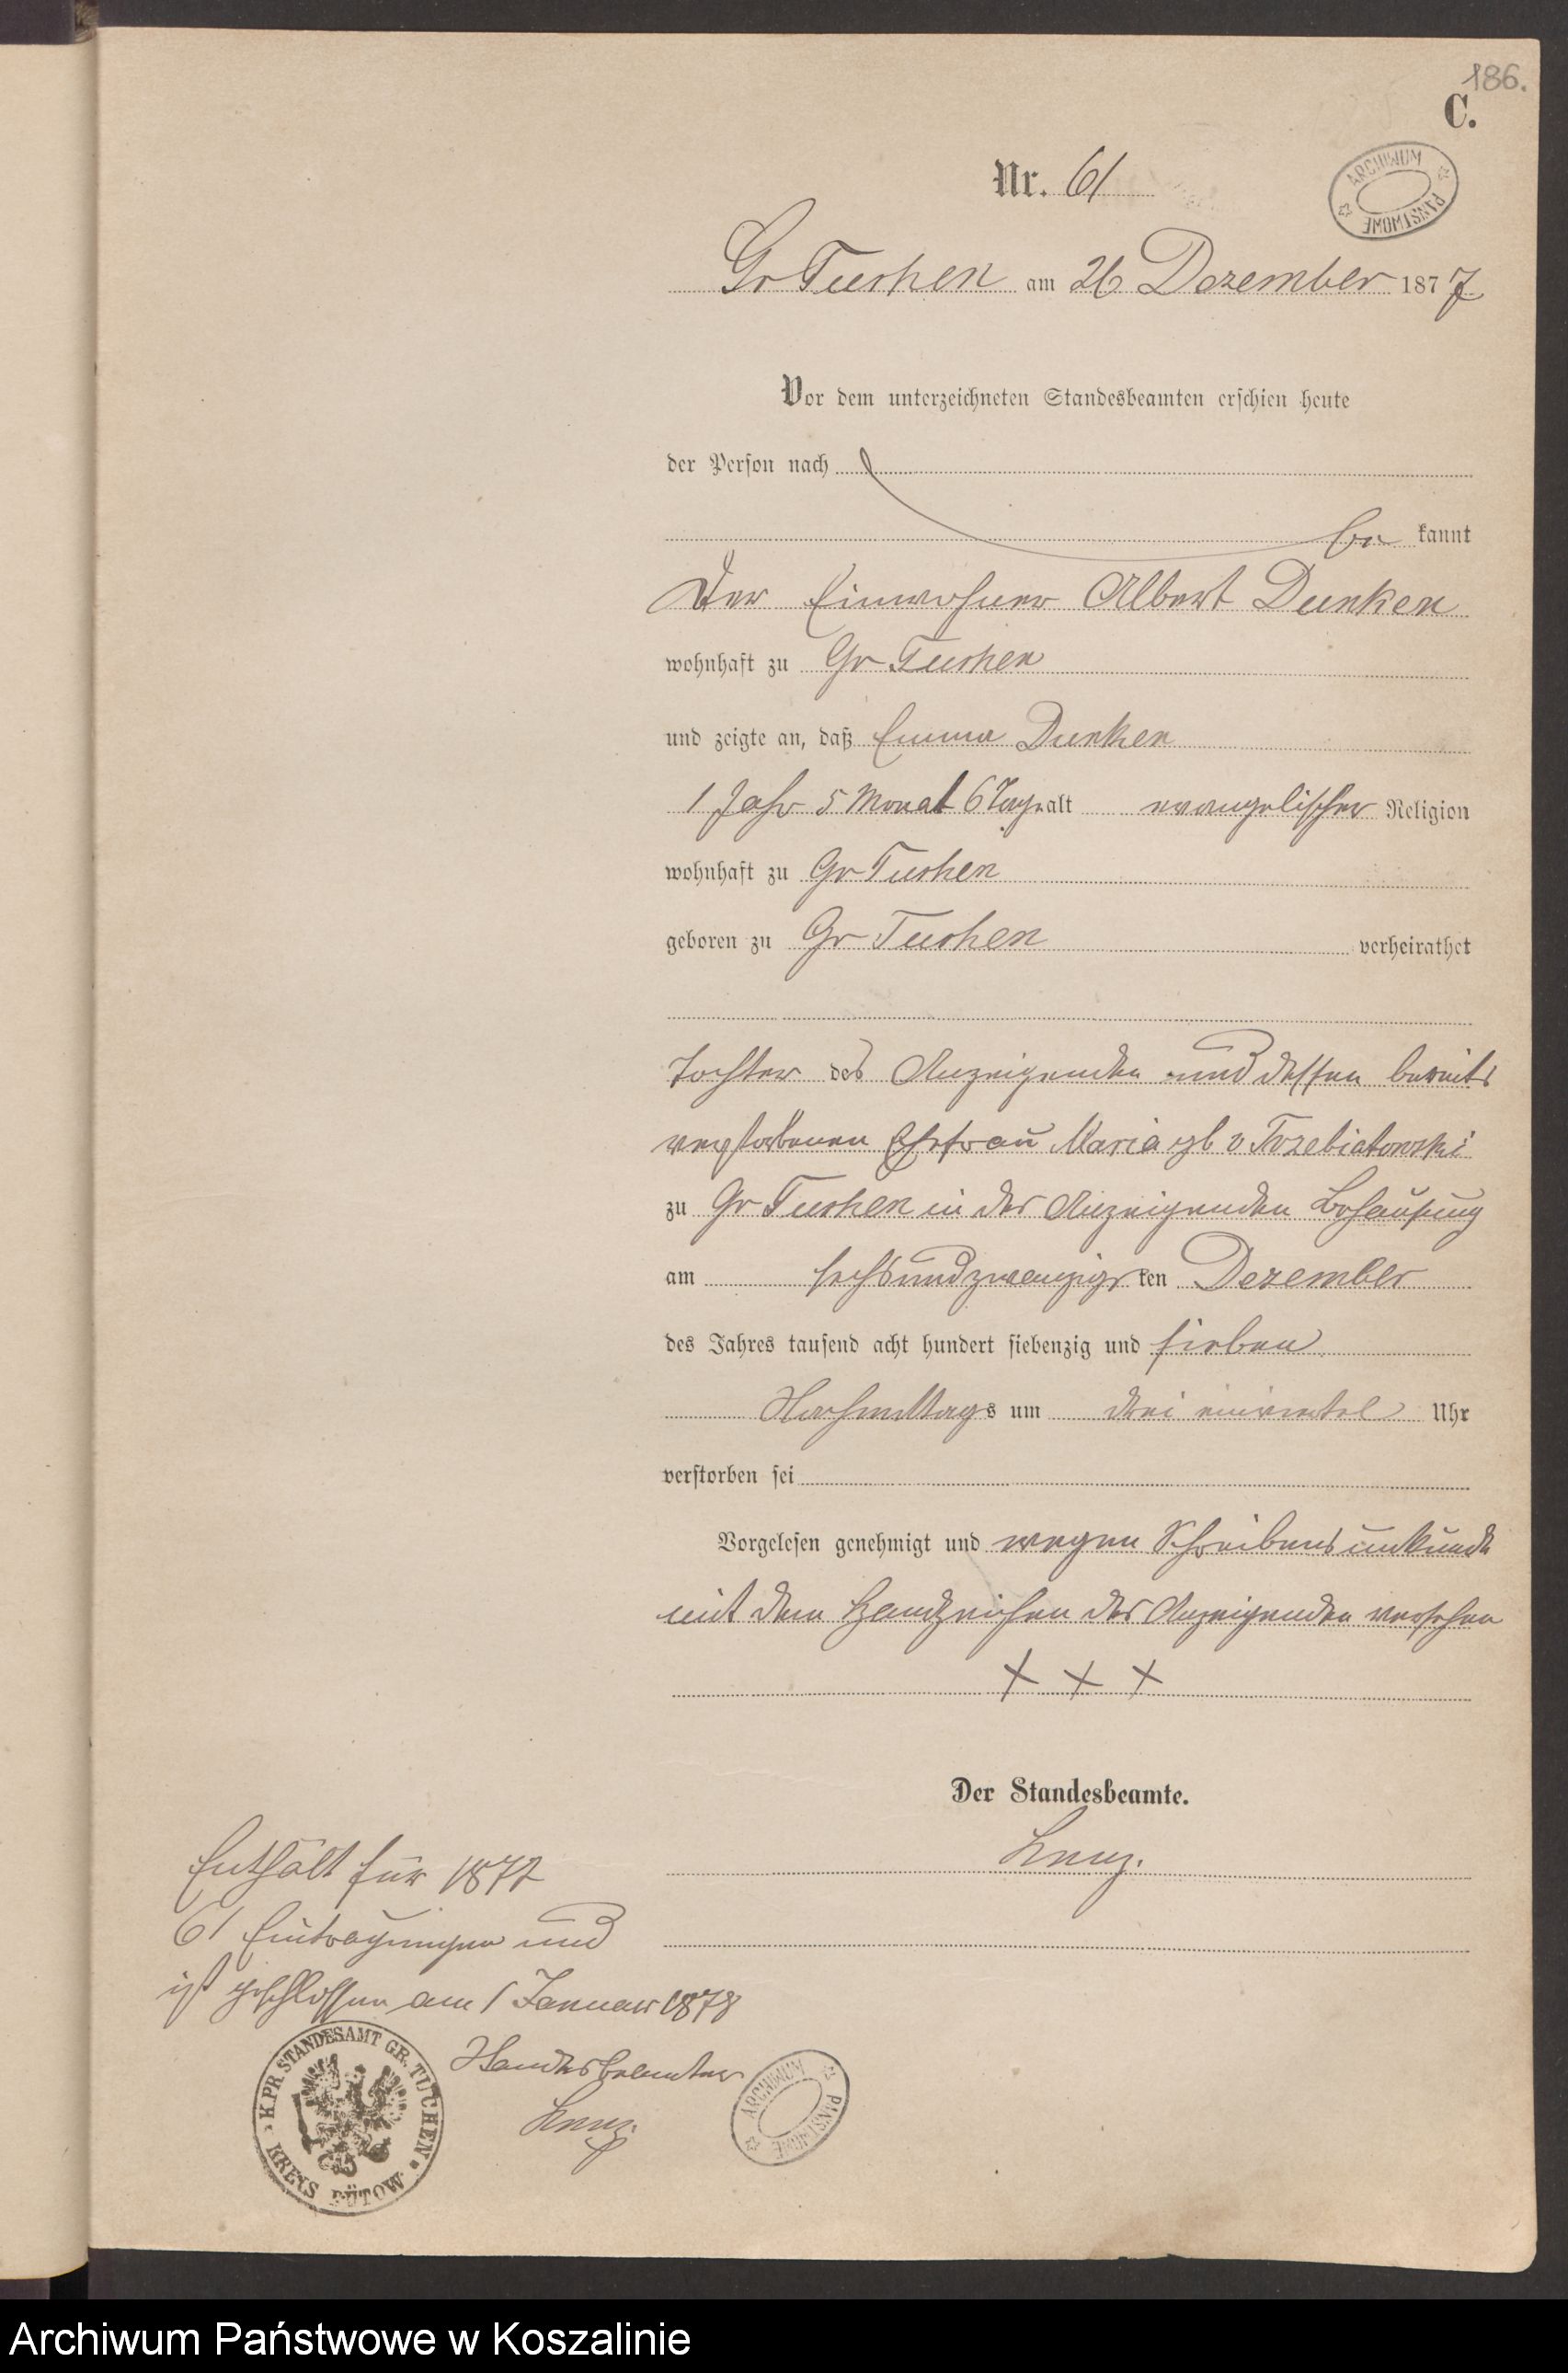 186.
C.
Nr. 61
ARCHIWUM PAŃSTWOWE
Gr Tuchen am 26 Dezember 1877
Vor dem unterzeichneten Standesbeamten erschien heute
der Person nach
be kannt
Der Einwohner Albert Dunken
wohnhaft zu Gr Tuchen
und zeigte an, daß Emma Dunken
1 Jahr 5 Monat 6 Tage alt evangelischer Religion
wohnhaft zu Gr Tuchen
geboren zu Gr Tuchen verheirathet
Tochter des Anzeigenden und dessen bereits
verstorbenen Ehefrau Maria geb v Trzebiatowski
zu Gr Tuchen in des Anzeigenden Behausung
am sechsundzwanzigs ten Dezember
des Jahres tausend acht hundert siebenzig und sieben
Nachmittags um drei einviertel Uhr
verstorben sei
Vorgelesen genehmigt und wegen Schreibensunkunde
mit dem Handzeichen des Anzeigenden versehen
X X X
Der Standesbeamte.
Enthält für 1877
61 Eintragungen und
ist geschlossen am 1 Januar 1878
Standesbeamter
K.PR.STANDESAMT GR. TUCHEN
KREIS BÜTOW
ARCHIWUM PAŃSTWOWE
Archiwum Państwowe w Koszalinie